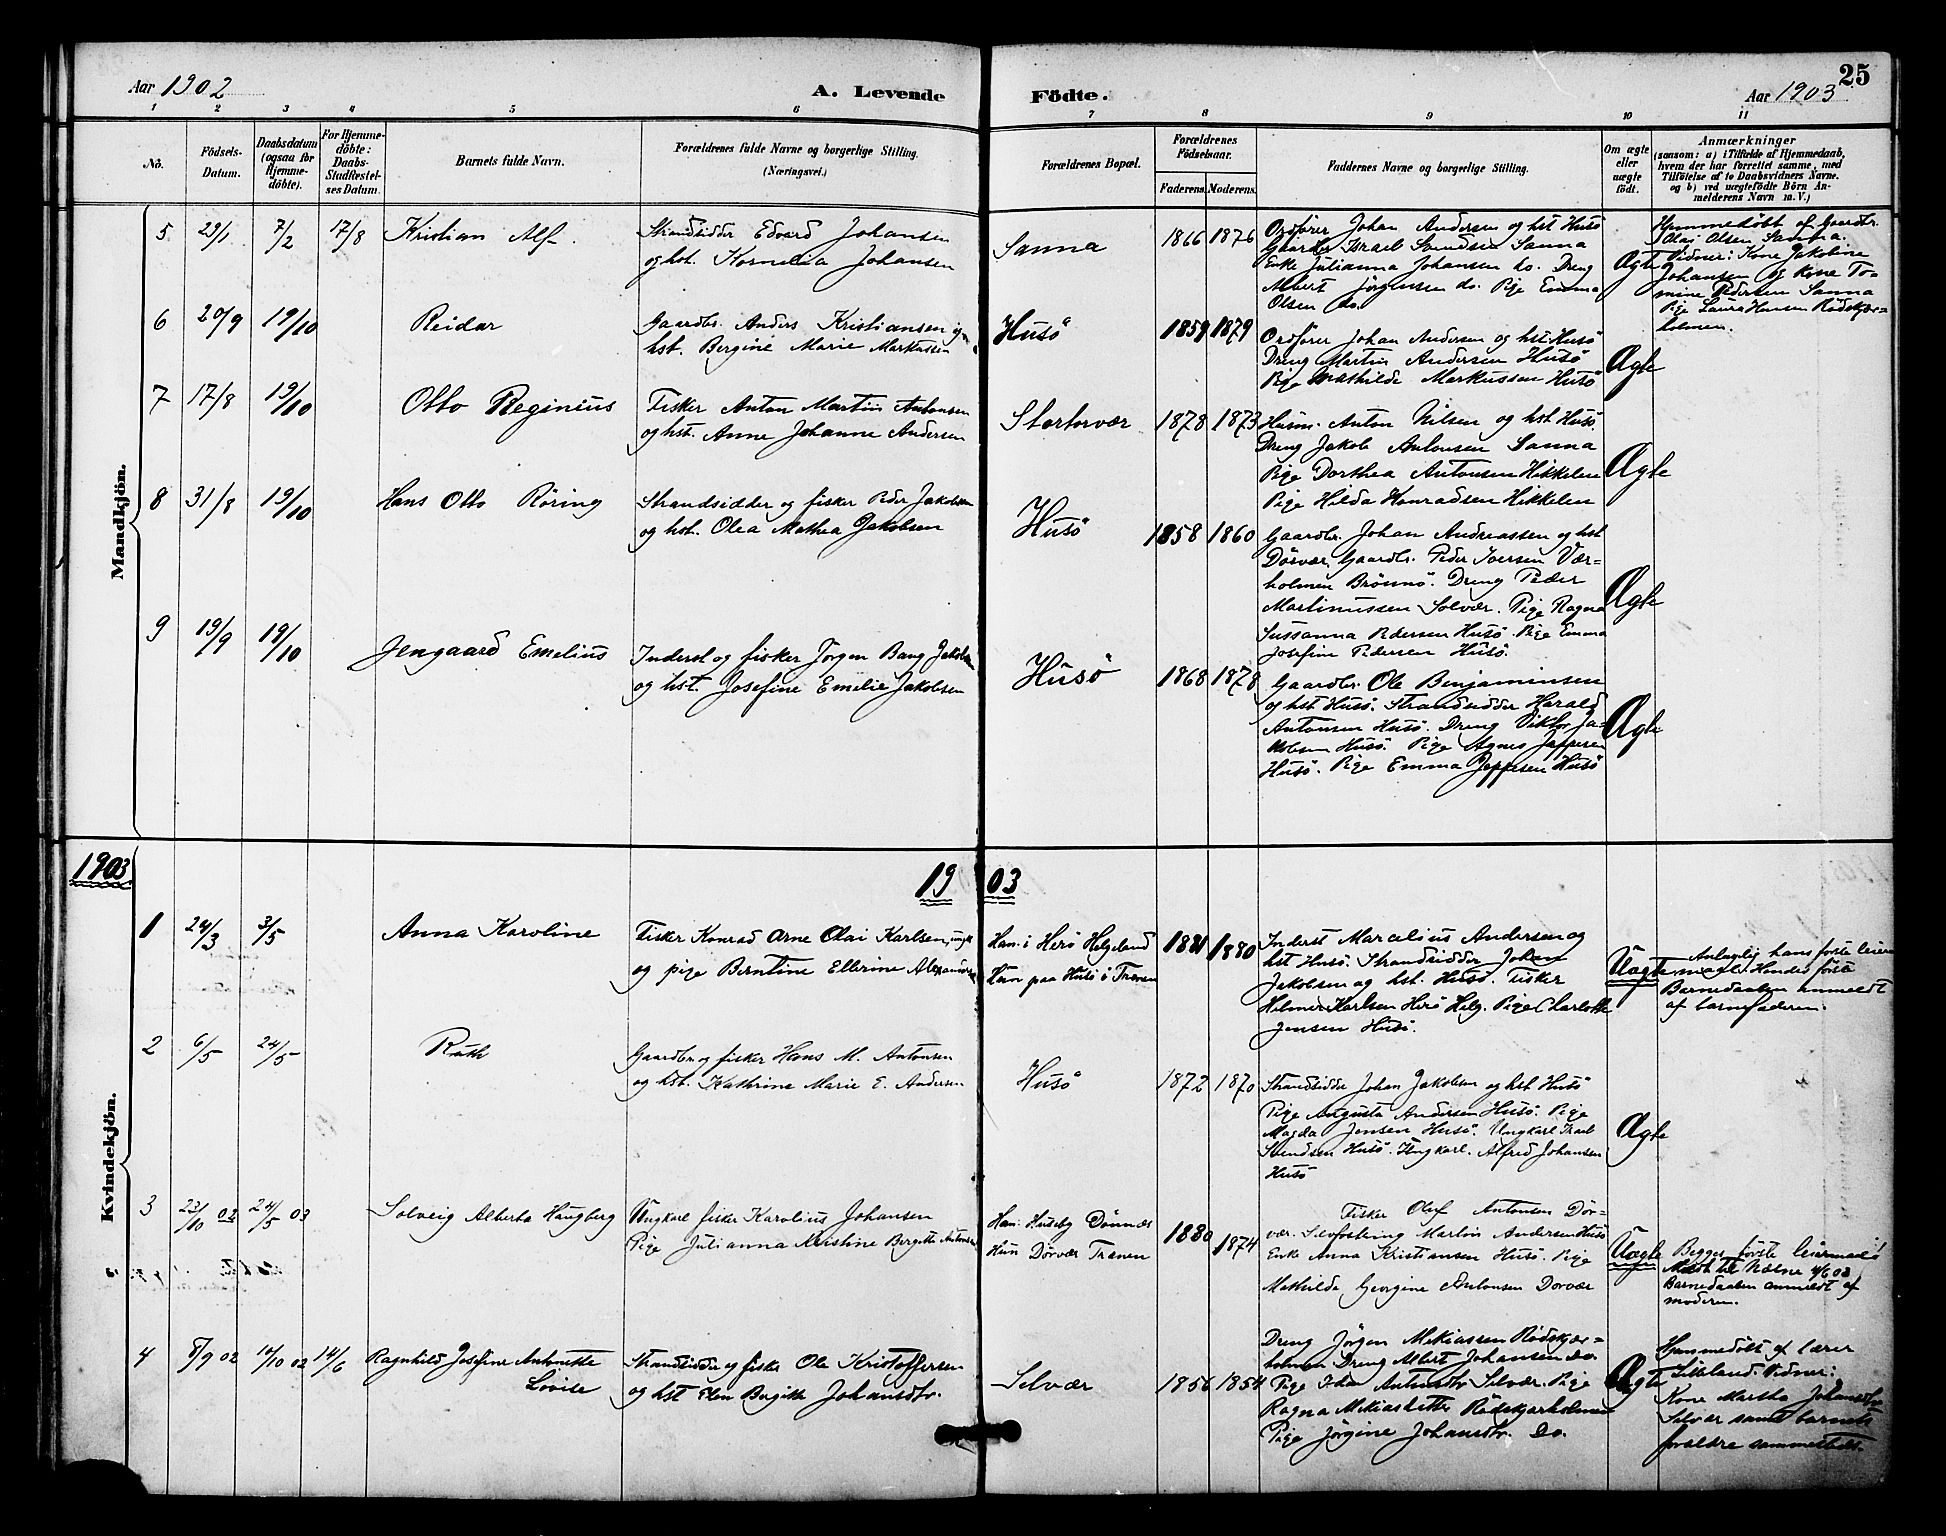 25
Aar 1902
A. Levende
Födte.
Aar 1903
1 2 3 4 5 6 7 8 9 10 11
No.
Födsels-Datum.
Daabsdatum (ogsaa for Hjemme-döbte).
For Hjemme-döbte: Daabs-Stadfæstel-ses Datum.
Barnets fulde Navn.
Forældrenes fulde Navne og borgerlige Stilling.
(Næringsvei.)
Forældrenes Bopæl.
Forældrenes Födselsaar.
Faderens. Moderens.
Faddernes Navne og borgerlige Stilling.
Om ægte eller uægte födt.
Anmærkninger
(saasom: a) i Tilfælde af Hjemmedaab,
hvem der har forrettet samme, med
Tilföielse af to Daabsvidners Navne.
og b) ved uægtefödte Börn An-
melderens Navn m.V.)
Mandkjön.
5 29/1 7/2 17/8 Kristian Alf
Strandsidder Edvard Johansen
og hst. Kornelia Johansen
Sanna 1866 1876
Ordfører Johan Andersen og hst Husö
Gaardbr Israel Svendsen Sanna
Enke Julianna Johansen do. Dreng
Albert Jörgensen do. Pige Emma
Olsen do.
Ægte
Hjemmedöbt af Gaardbr.
Olai Olsen Sanna.
Vidner: Kone Jakobine
Johansen og Kone To-
mine Pedersen Sanna
Pige Laura Hansen Rödskjær-
holmen.
6 20/9 19/10 Reidar
Gaardbr. Anders Kristiansen og
hst. Bergine Marie Markussen
Husö 1859 1879
Ordfører Johan Andersen og hst Husö
Dreng Martin Andersen Husö
Pige Mathilde Markussen Husö
Ægte
7 17/8 19/10 Otto Reginius
Fisker Anton Martin Antonsen
og hst. Anne Johanne Andersen
Stortorvær 1878 1873
Husm. Anton Nilsen og hst Husö.
Dreng Jakob Antonsen Sanna
Pige Dorthea Antonsen Hikkelen
Pige Hilda Konradsen Hikkelen
Ægte
8 31/8 19/10 Hans Otto Röring
Strandsidder og fisker Peder Jakobsen
og hst. Olea Mathea Jakobsen
Husö 1858 1860
Gaardbr. Johan Andreassen og hst
Dörvær, Gaardbr. Peder Iversen Vær-
holmen Brönnö. Dreng Peder
Martinussen Solvær. Pige Ragna
Sussanna Pedersen Husö. Pige Emma
Josefine Pedersen Husö.
Ægte
9 19/9 19/10 Jengaard Emelius
Inderst og fisker Jörgen Bang Jakobsen
og hst. Josefine Emelie Jakobsen
Husö 1868 1878
Gaardbr. Ole Benjaminsen
og hst Husö. Strandsidder Harald
Antonsen Husö. Dreng Viktor Ja-
kobsen Husö. Pige Agnes Jeppesen
Husö. Pige Emma Jeppesen Husö
Ægte
1903
1903
Kvindekjön.
1 24/3 3/5 Anna Karoline
Fisker Konrad Arne Olai Karlsen, ungk
og pige Berntine Ellerine Alexandersen
Han: i Herö Helgeland
Hun paa Husö i Trænen
1881 1880
Inderst Marcelius Andersen og
hst Husö. Strandsidder Johan
Jakobsen og hst. Husö. Fisker
Helmer Karlsen Herö Helg. Pige Charlotte
Jensen Husö.
Uægte
Anlagtlig hans første leier-
maal. Hendes første
Barnedaaben anmeldt
af barnefaderen.
2 6/5 24/5 Ruth
Gaardbr og fisker Hans M. Antonsen
og hst. Kathrine Marie E. Andersen
Husö 1872 1870
Strandsidder Johan Jakobsen og hst Husö
Pige Augusta Andersen Husö. Pige
Magda Jensen Husö. Ungkarl Israel
Svendsen Husö. Ungkarl. Alfred Johansen
Husö
Ægte
3 23/10 02 24/5 03 Solveig Alberta Haugberg
Ungkarl fisker Karolius Johansen
Pige Julianna Kristine Bergitte Antonsen
Han: Huseby Dönnæs
Hun Dörvær Trænen
1880 1874
Fisker Olef Antonsen Dör-
vær. Selvfostring Martin Andersen Husö
Enke Anna Kristiansen Husö. Pige
Mathilda Georgine Antonsen Dorvær
Uægte
Begges første leiermaal
Meldt til Næsne 4/6 03
Barnedaaben anmeldt af
moderen.
4 8/9 02 10/10 02 14/6 Ragnhild Josefine Antonette
Lovise
Strandsidder og fisker Ole Kristoffersen
og hst Elen Bergitte Johansdtr.
Selvær 1856 1854
Dreng Jörgen Mekiassen Rödskjær-
holmen Dreng Albert Johansen do.
Pige Ida Antonsdtr Selvær. Pige
Ragna Mekiasdatter Rödskjærholmen
Pige Jörgine Johansdtr. do.
Ægte
Hjemmedöbt af lærer
Vidner:
Kone Martha Johansdtr
Selvær samt barnets
forældre sammesteds.